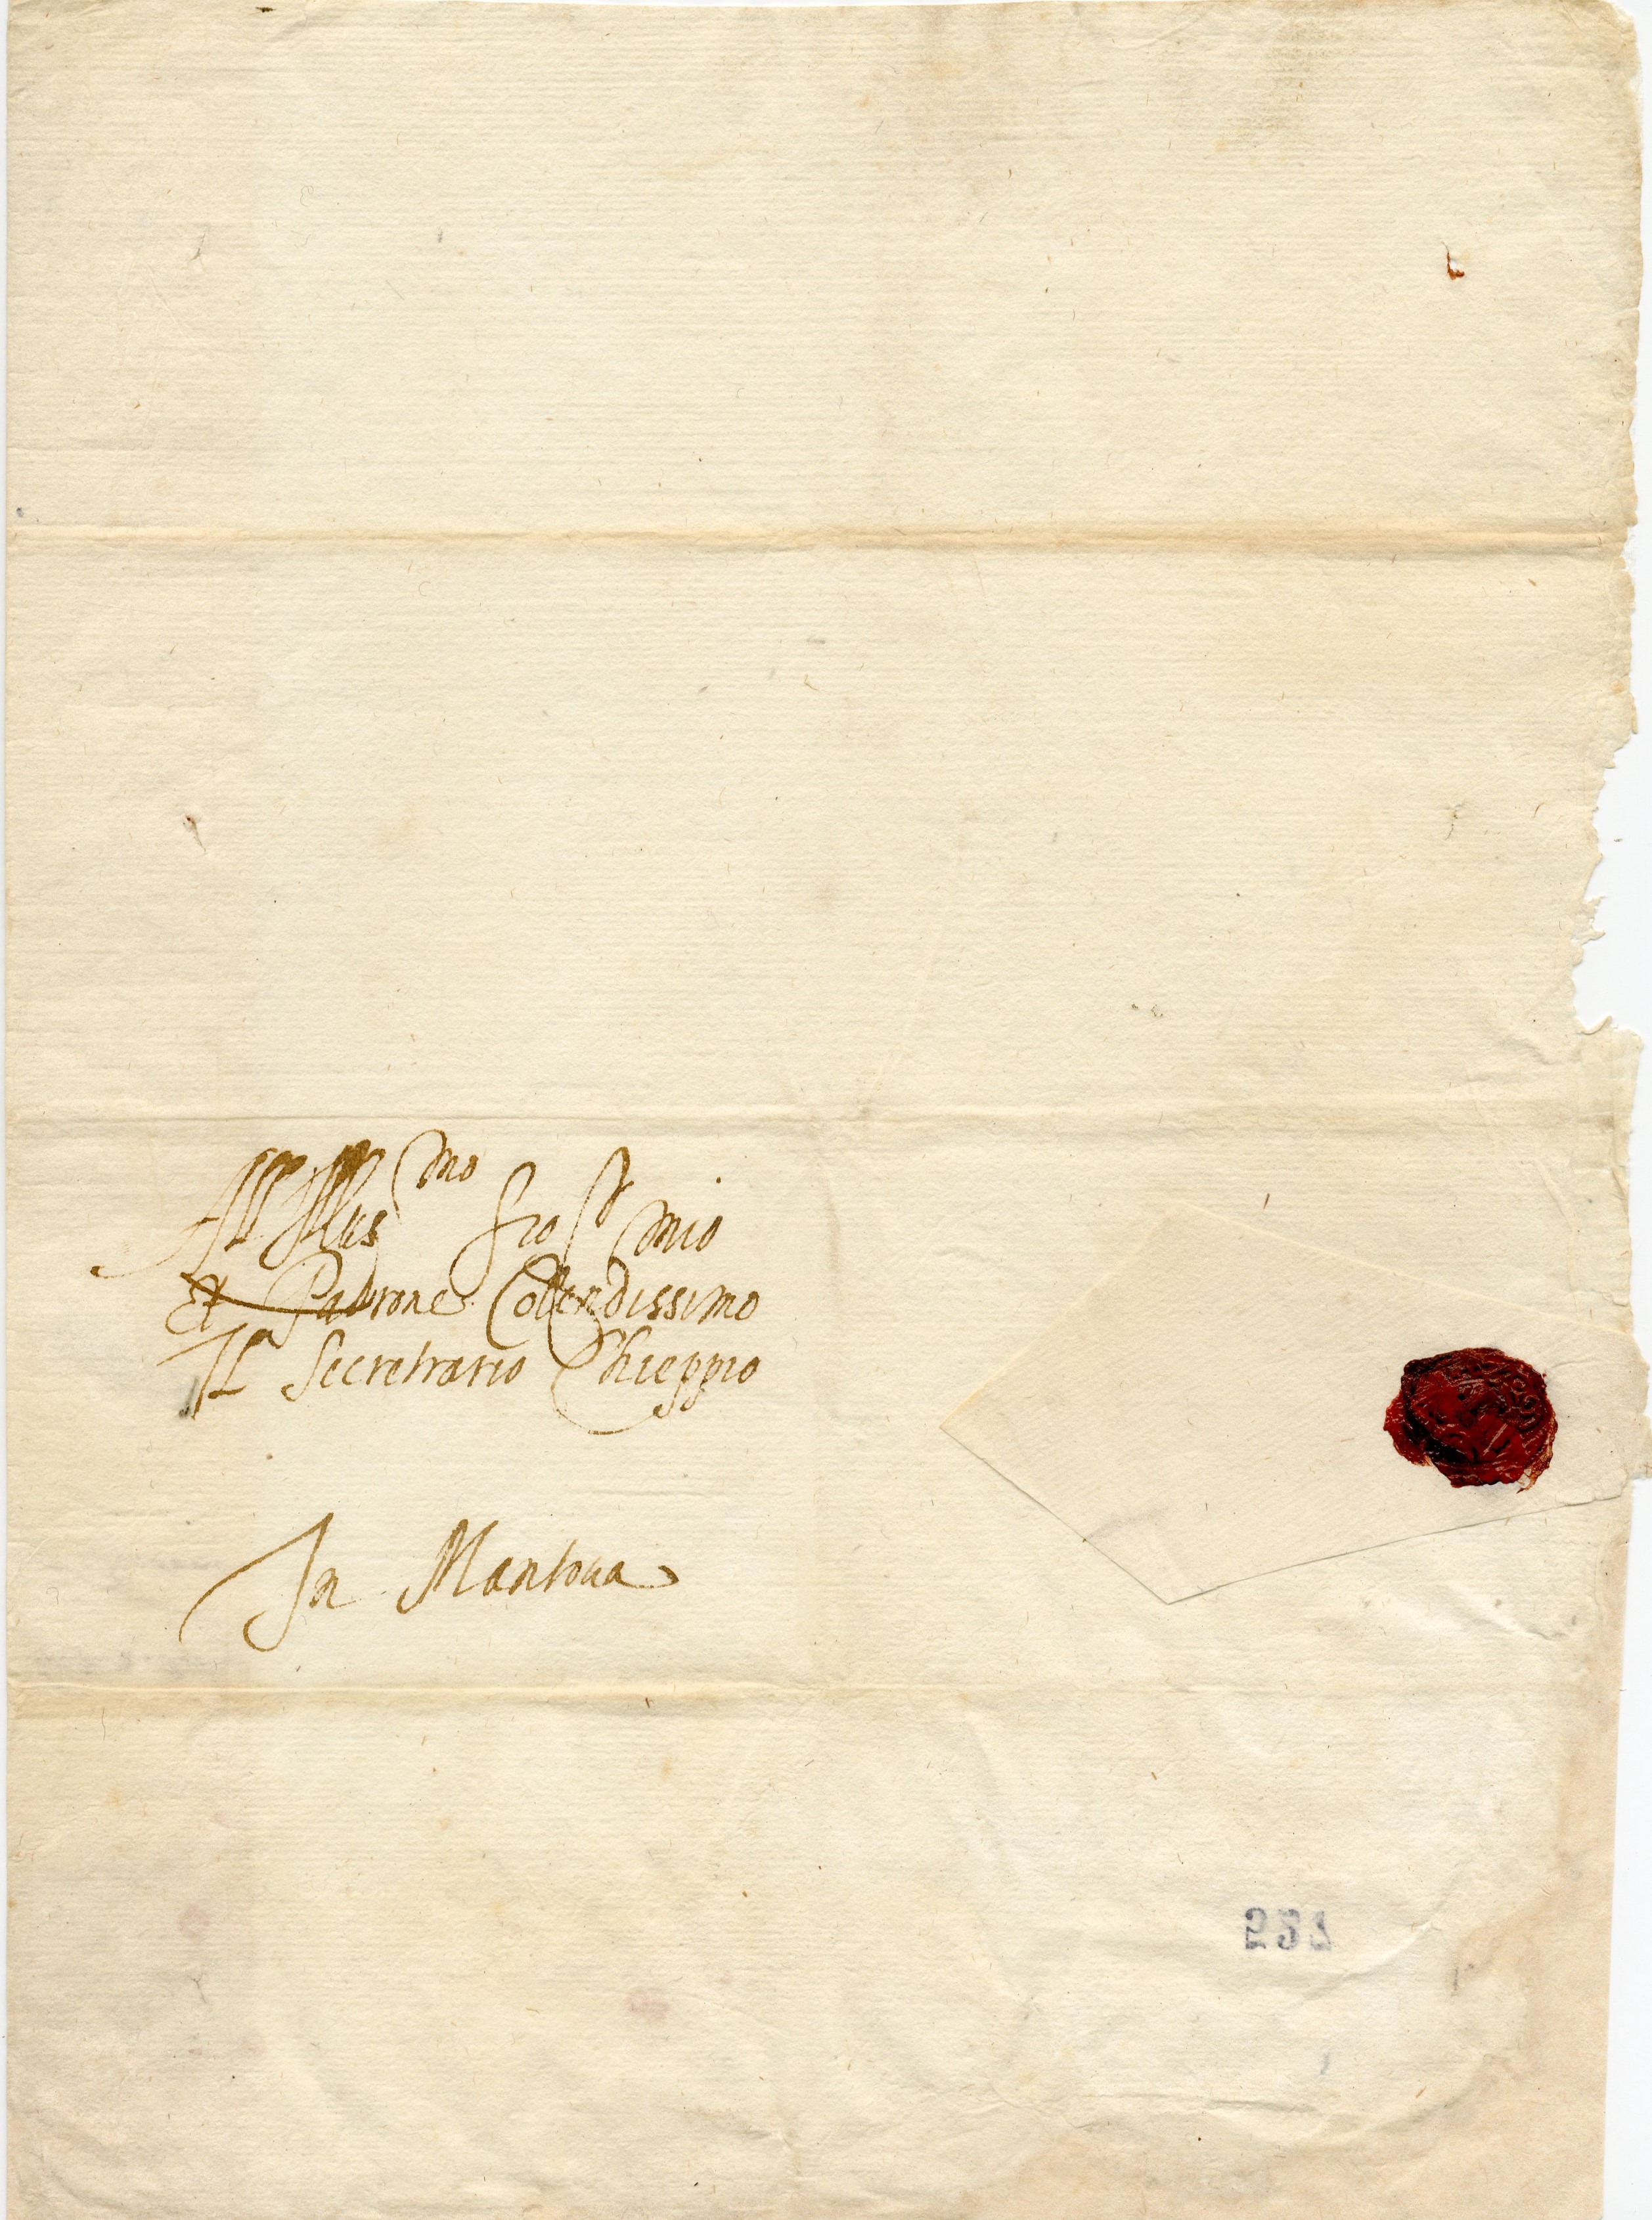 All Illus.mo Sig.r mio
et Padrone Collendissimo
Il Secretrario Chieppio
In Mantoua
232